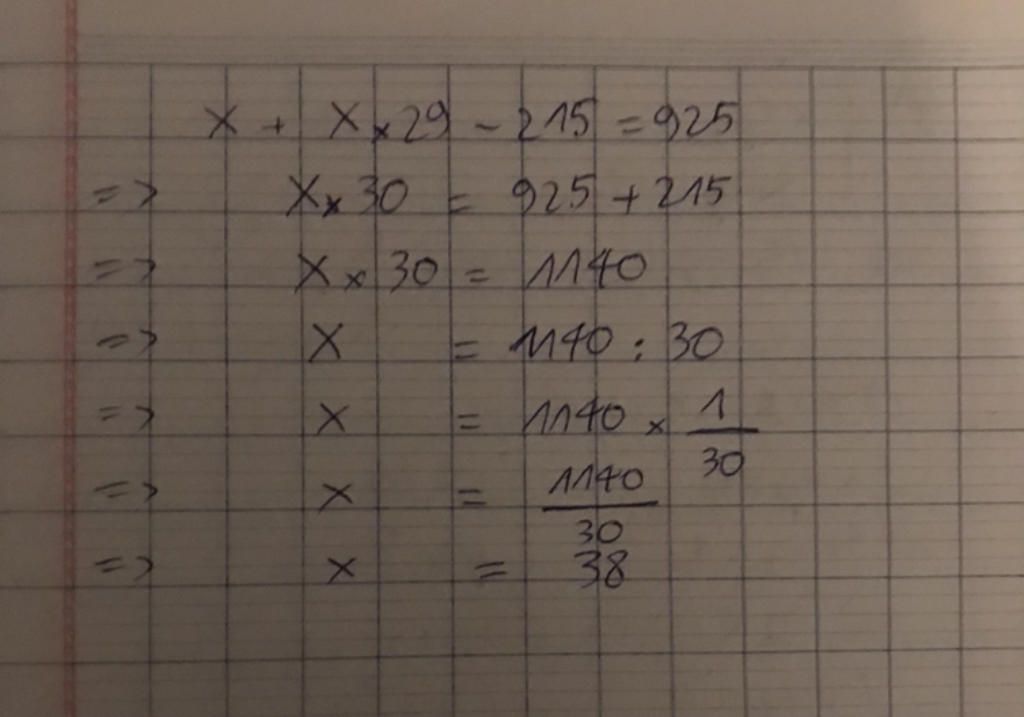 X + X × 29 - 215 = 925
=> X × 30 = 925 + 215
=> X × 30 = 1140
=> X = 1140 : 30
=> x = 1140 × 1/30
=> x = 1140/30
=> x = 38